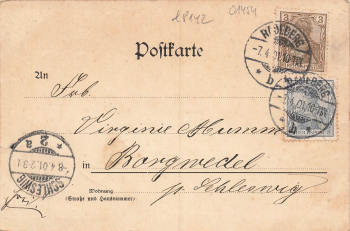 LP142 01454
Postkarte
An
Frl.
Virginie Mumm
in Borgwedel
p. Schleswig
Wohnung
(Straße und Hausnummer)
3 3
-7.4.01.10-11V.
* b
SCHLESWIG
-8.4.01.2-3N.
* 2 a